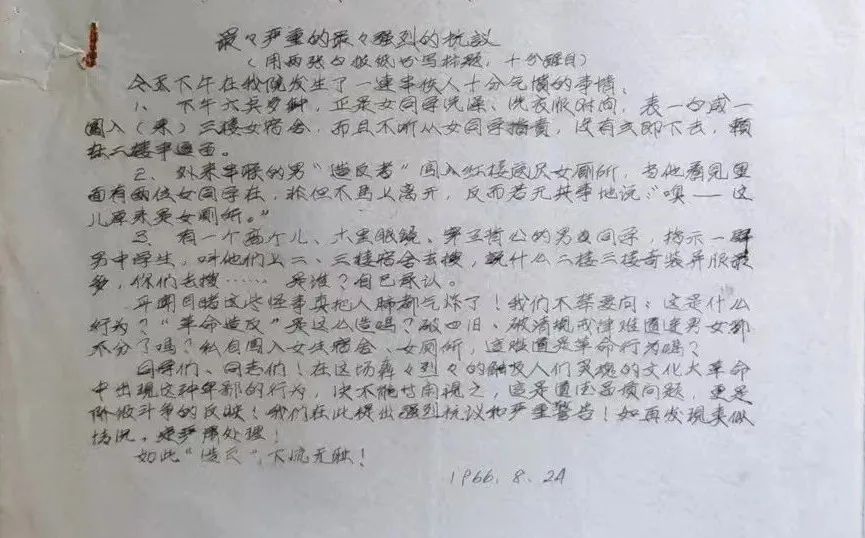 最々严重的最々强烈的抗议
（用两张白报纸书写标题，十分醒目）
今天下午在我院发生了一连串使人十分气愤的事情。
1、下午六点多钟，正是女同学洗澡、洗衣服时间，表一的成一
闯入（来）三楼女宿舍，而且不听从女同学指责，没有立即下去，赖
在二楼半过面。
2、外来串联的男“造反者”闯入红楼底层女厕所，当他看见里
面有两位女同学在，非但不马上离开，反而若无其事地说：“噢——这
儿原来是女厕所。”
3、有一个高个儿、大黑眼镜、穿五背心的男同学，指示一群
男中学生，叫他们上二、三楼宿舍去搜，说什么二楼三楼奇装异服最
多，你们去搜……是谁？自己承认。
耳闻目睹这些怪事真把人肺都气炸了！我们不禁要问：这是什么
行为？“革命造反”是这么造吗？破四旧、破清规戒律难道连男女都
不分了吗？私自闯入女生宿舍、女厕所，这难道是革命行为吗？
同学们、同志们！在这场轰々烈々的触及人们灵魂的文化大革命
中出现这种卑鄙的行为，决不能等闲视之，这是道德品质问题，更是
阶级斗争的反映！我们在此提出强烈抗议和严重警告！如再发现类似
情况，定严肃处理！
如此“造反”，下流无耻！
1966.8.24